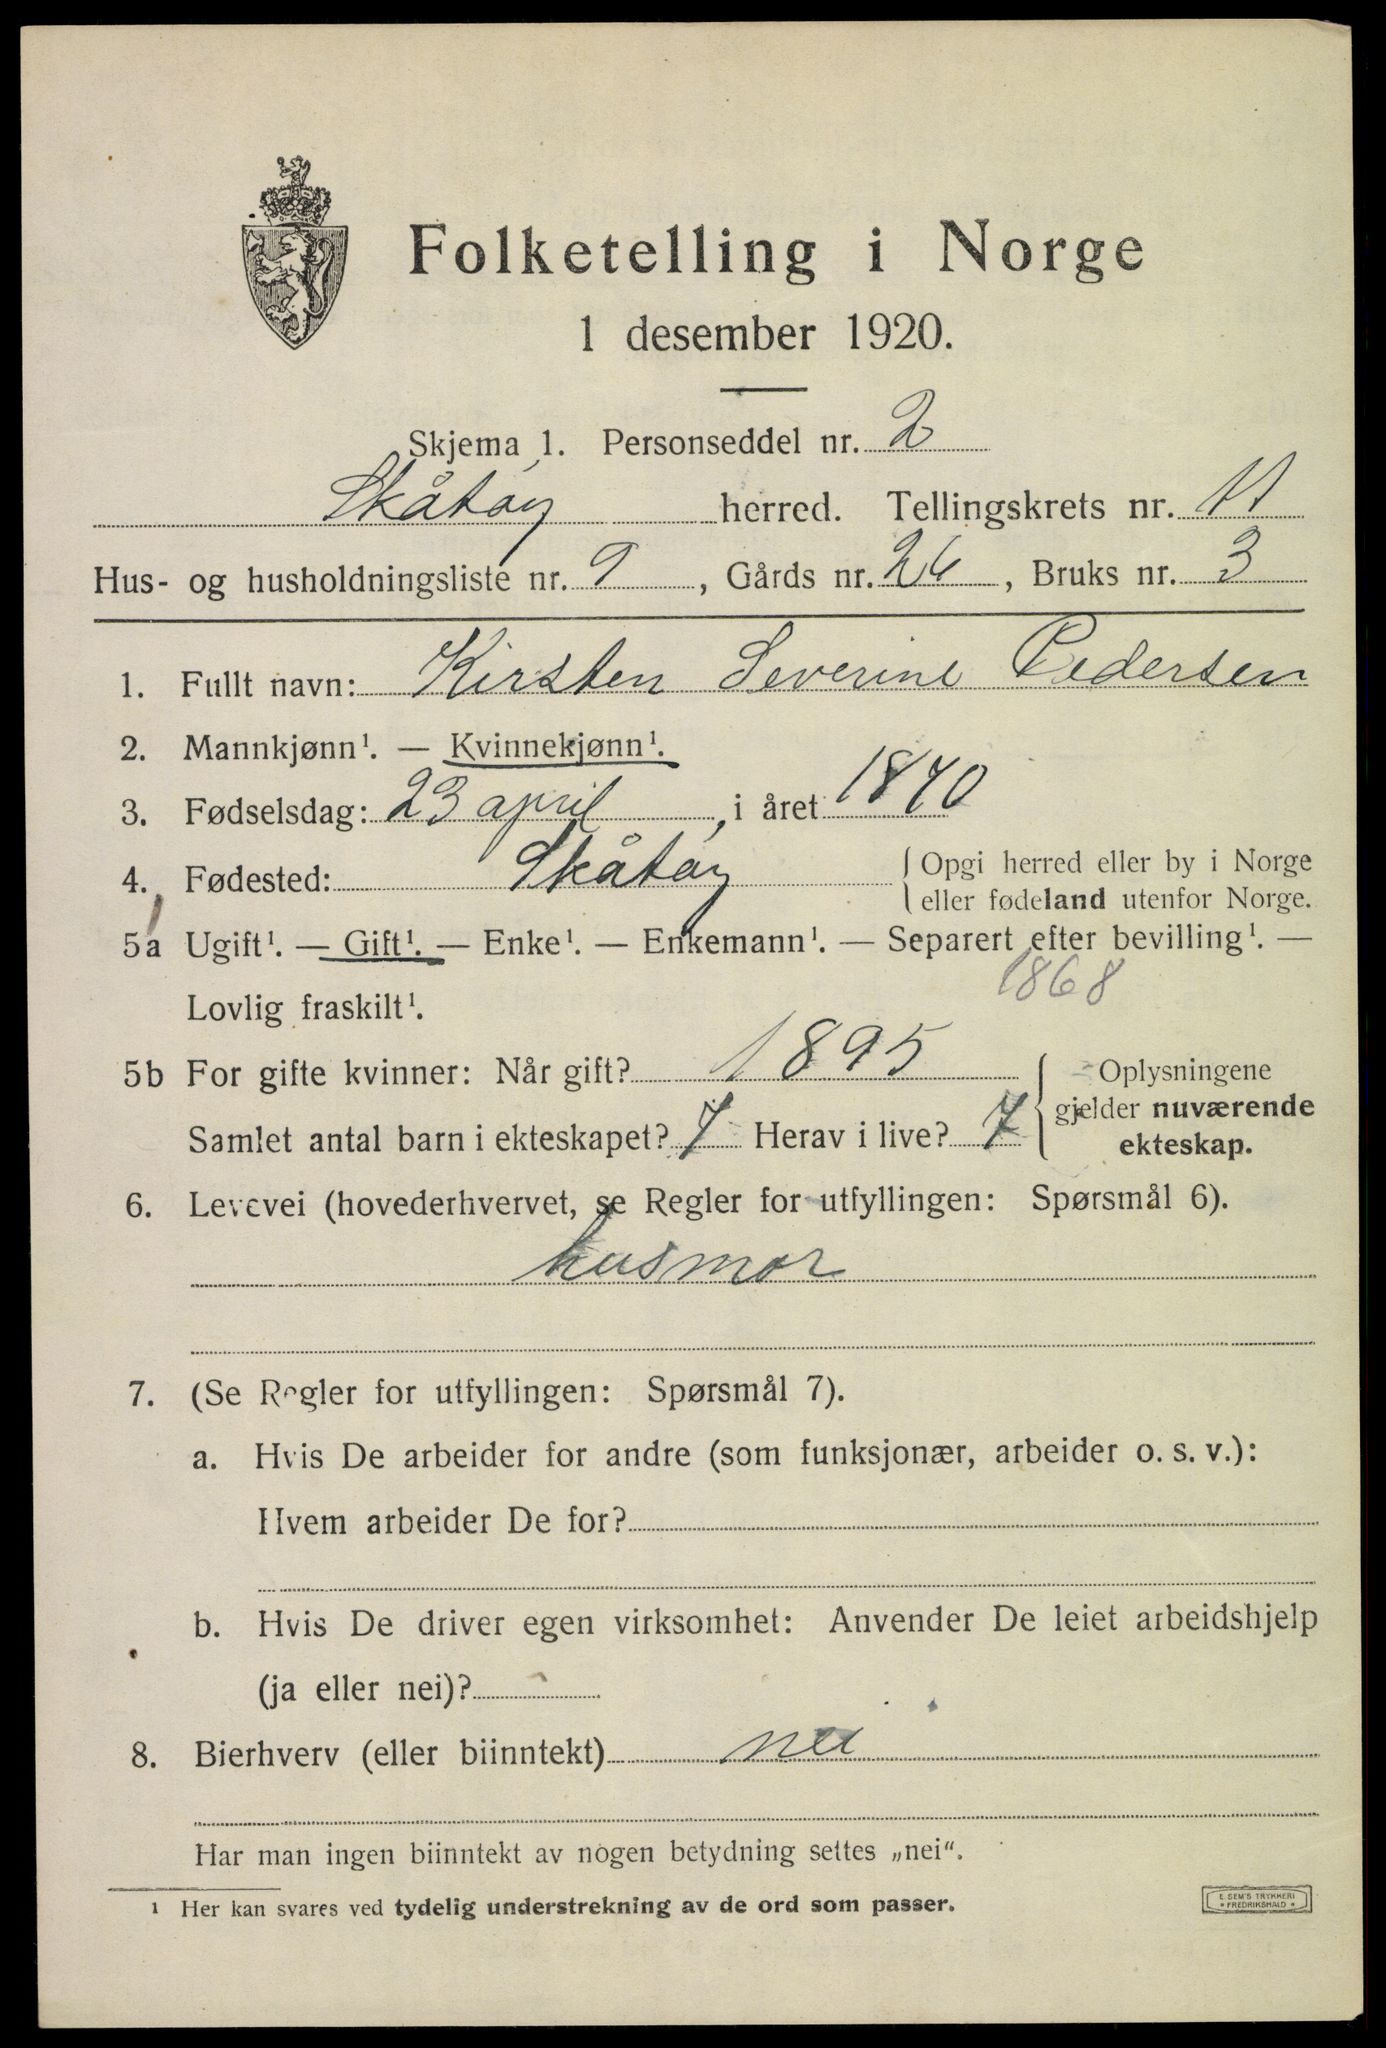 Folketelling i Norge
1 desember 1920.
Skjema 1. Personseddel nr. 2
Skåtøy herred. Tellingskrets nr. 11
Hus- og husholdningsliste nr. 9, Gårds nr. 26, Bruks nr. 3
1. Fullt navn: Kirsten Severine Pedersen
2. Mannkjønn¹. — Kvinnekjønn¹.
3. Fødselsdag: 23 april, i året 1870
4. Fødested: Skåtøy { Opgi herred eller by i Norge
eller fødeland utenfor Norge.
5a Ugift¹. — Gift¹. — Enke¹. — Enkemann¹. — Separert efter bevilling¹. —
Lovlig fraskilt¹. 1868
5b For gifte kvinner: Når gift? 1895 { Oplysningene
Samlet antal barn i ekteskapet? 7 Herav i live? 7 gjelder nuværende
ekteskap.
6. Levevei (hovederhvervet, se Regler for utfyllingen: Spørsmål 6).
husmor
7. (Se Regler for utfyllingen: Spørsmål 7).
a. Hvis De arbeider for andre (som funksjonær, arbeider o. s. v.):
Hvem arbeider De for?
b. Hvis De driver egen virksomhet: Anvender De leiet arbeidshjelp
(ja eller nei)?
8. Bierhverv (eller biinntekt) nei
Har man ingen biinntekt av nogen betydning settes „nei“.
¹ Her kan svares ved tydelig understrekning av de ord som passer.
E. SEM'S TRYKKERI
* FREDRIKSHALD *